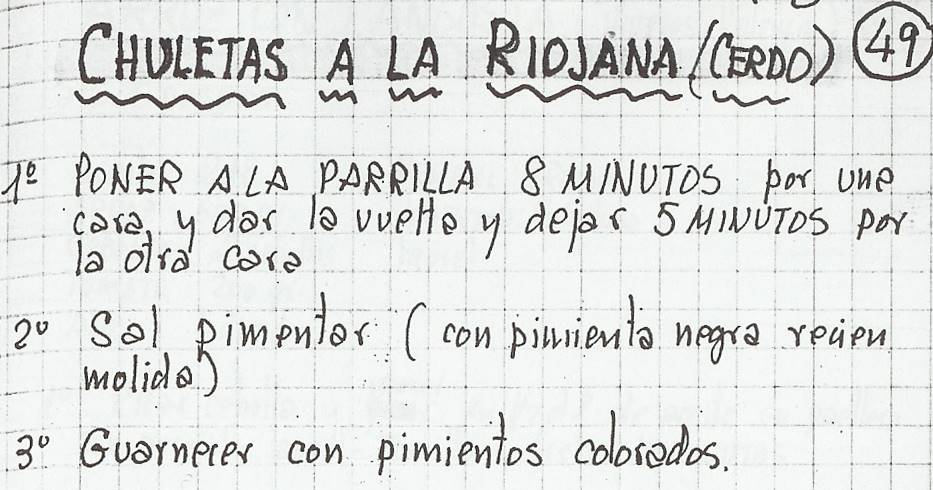 CHULETAS A LA RIOJANA (CERDO) 49
1º PONER A LA PARRILLA 8 MINUTOS por una
cara, y dar la vuelta y dejar 5 MINUTOS por
la otra cara
2º Sal pimentar (con pimienta negra recien
molida)
3º Guarnecer con pimientos colorados.